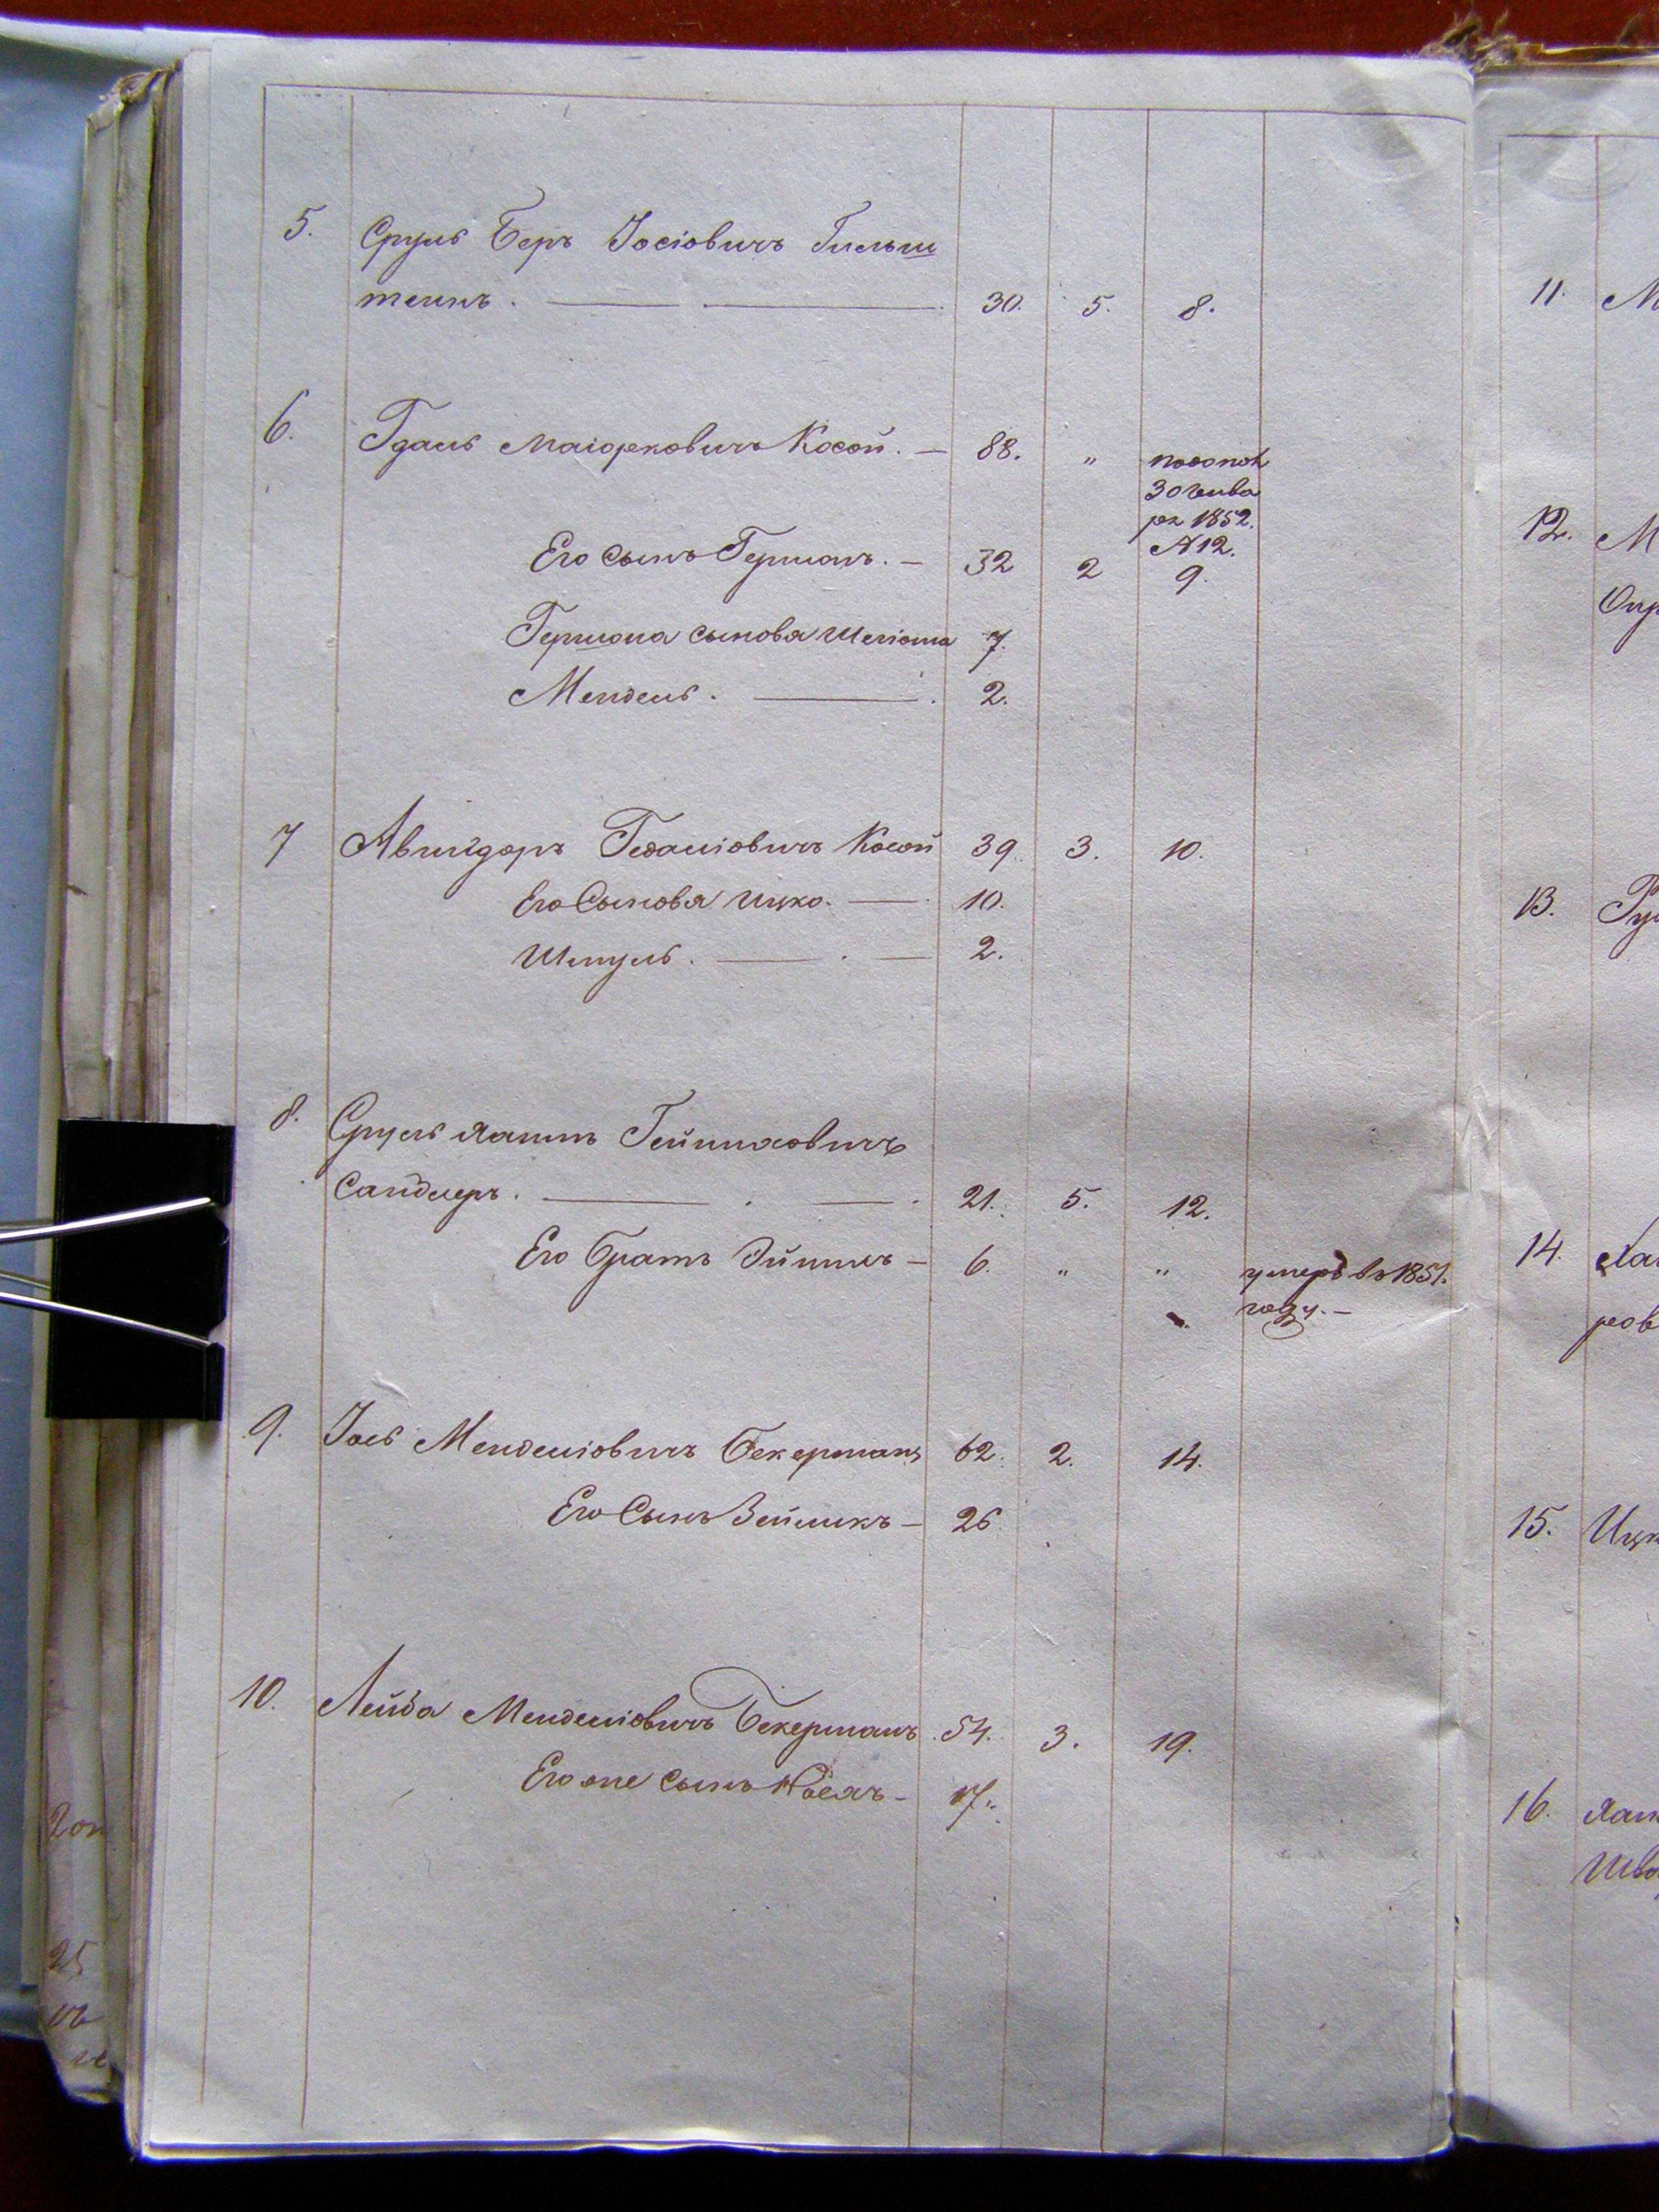 5. Сруль Беръ Іосіовичъ Гильш
теинъ. 30. 5. 8.
6. Гдаль Маіорковичъ Косой. — 88. "
30 генва
ря 1852.
№12.
Его Сынъ Гершонъ. — 32 2 9.
Гершона сыновя Шліома 7.
Мендель. 2.
7 Авигдоръ Гедаліовичъ Косой 39. 3. 10.
Его Сыновя Ицко. — 10.
Шмуль. — 2.
8. Сруль Хаимъ
Сандлеръ. 21. 5. 12.
Его братъ — 6. " " умеръ въ 1851.
году. —
9. Іось Менделіовичъ Бекерманъ 62. 2. 14.
Его Сынъ Зейликъ — 26.
10. Лейба Менделіовичъ Бекерманъ 54. 3. 19.
Его же сынъ — 17.
11. М
12. М
13. Ру
14. Ха
ров
15. Ицк
16. Хаи